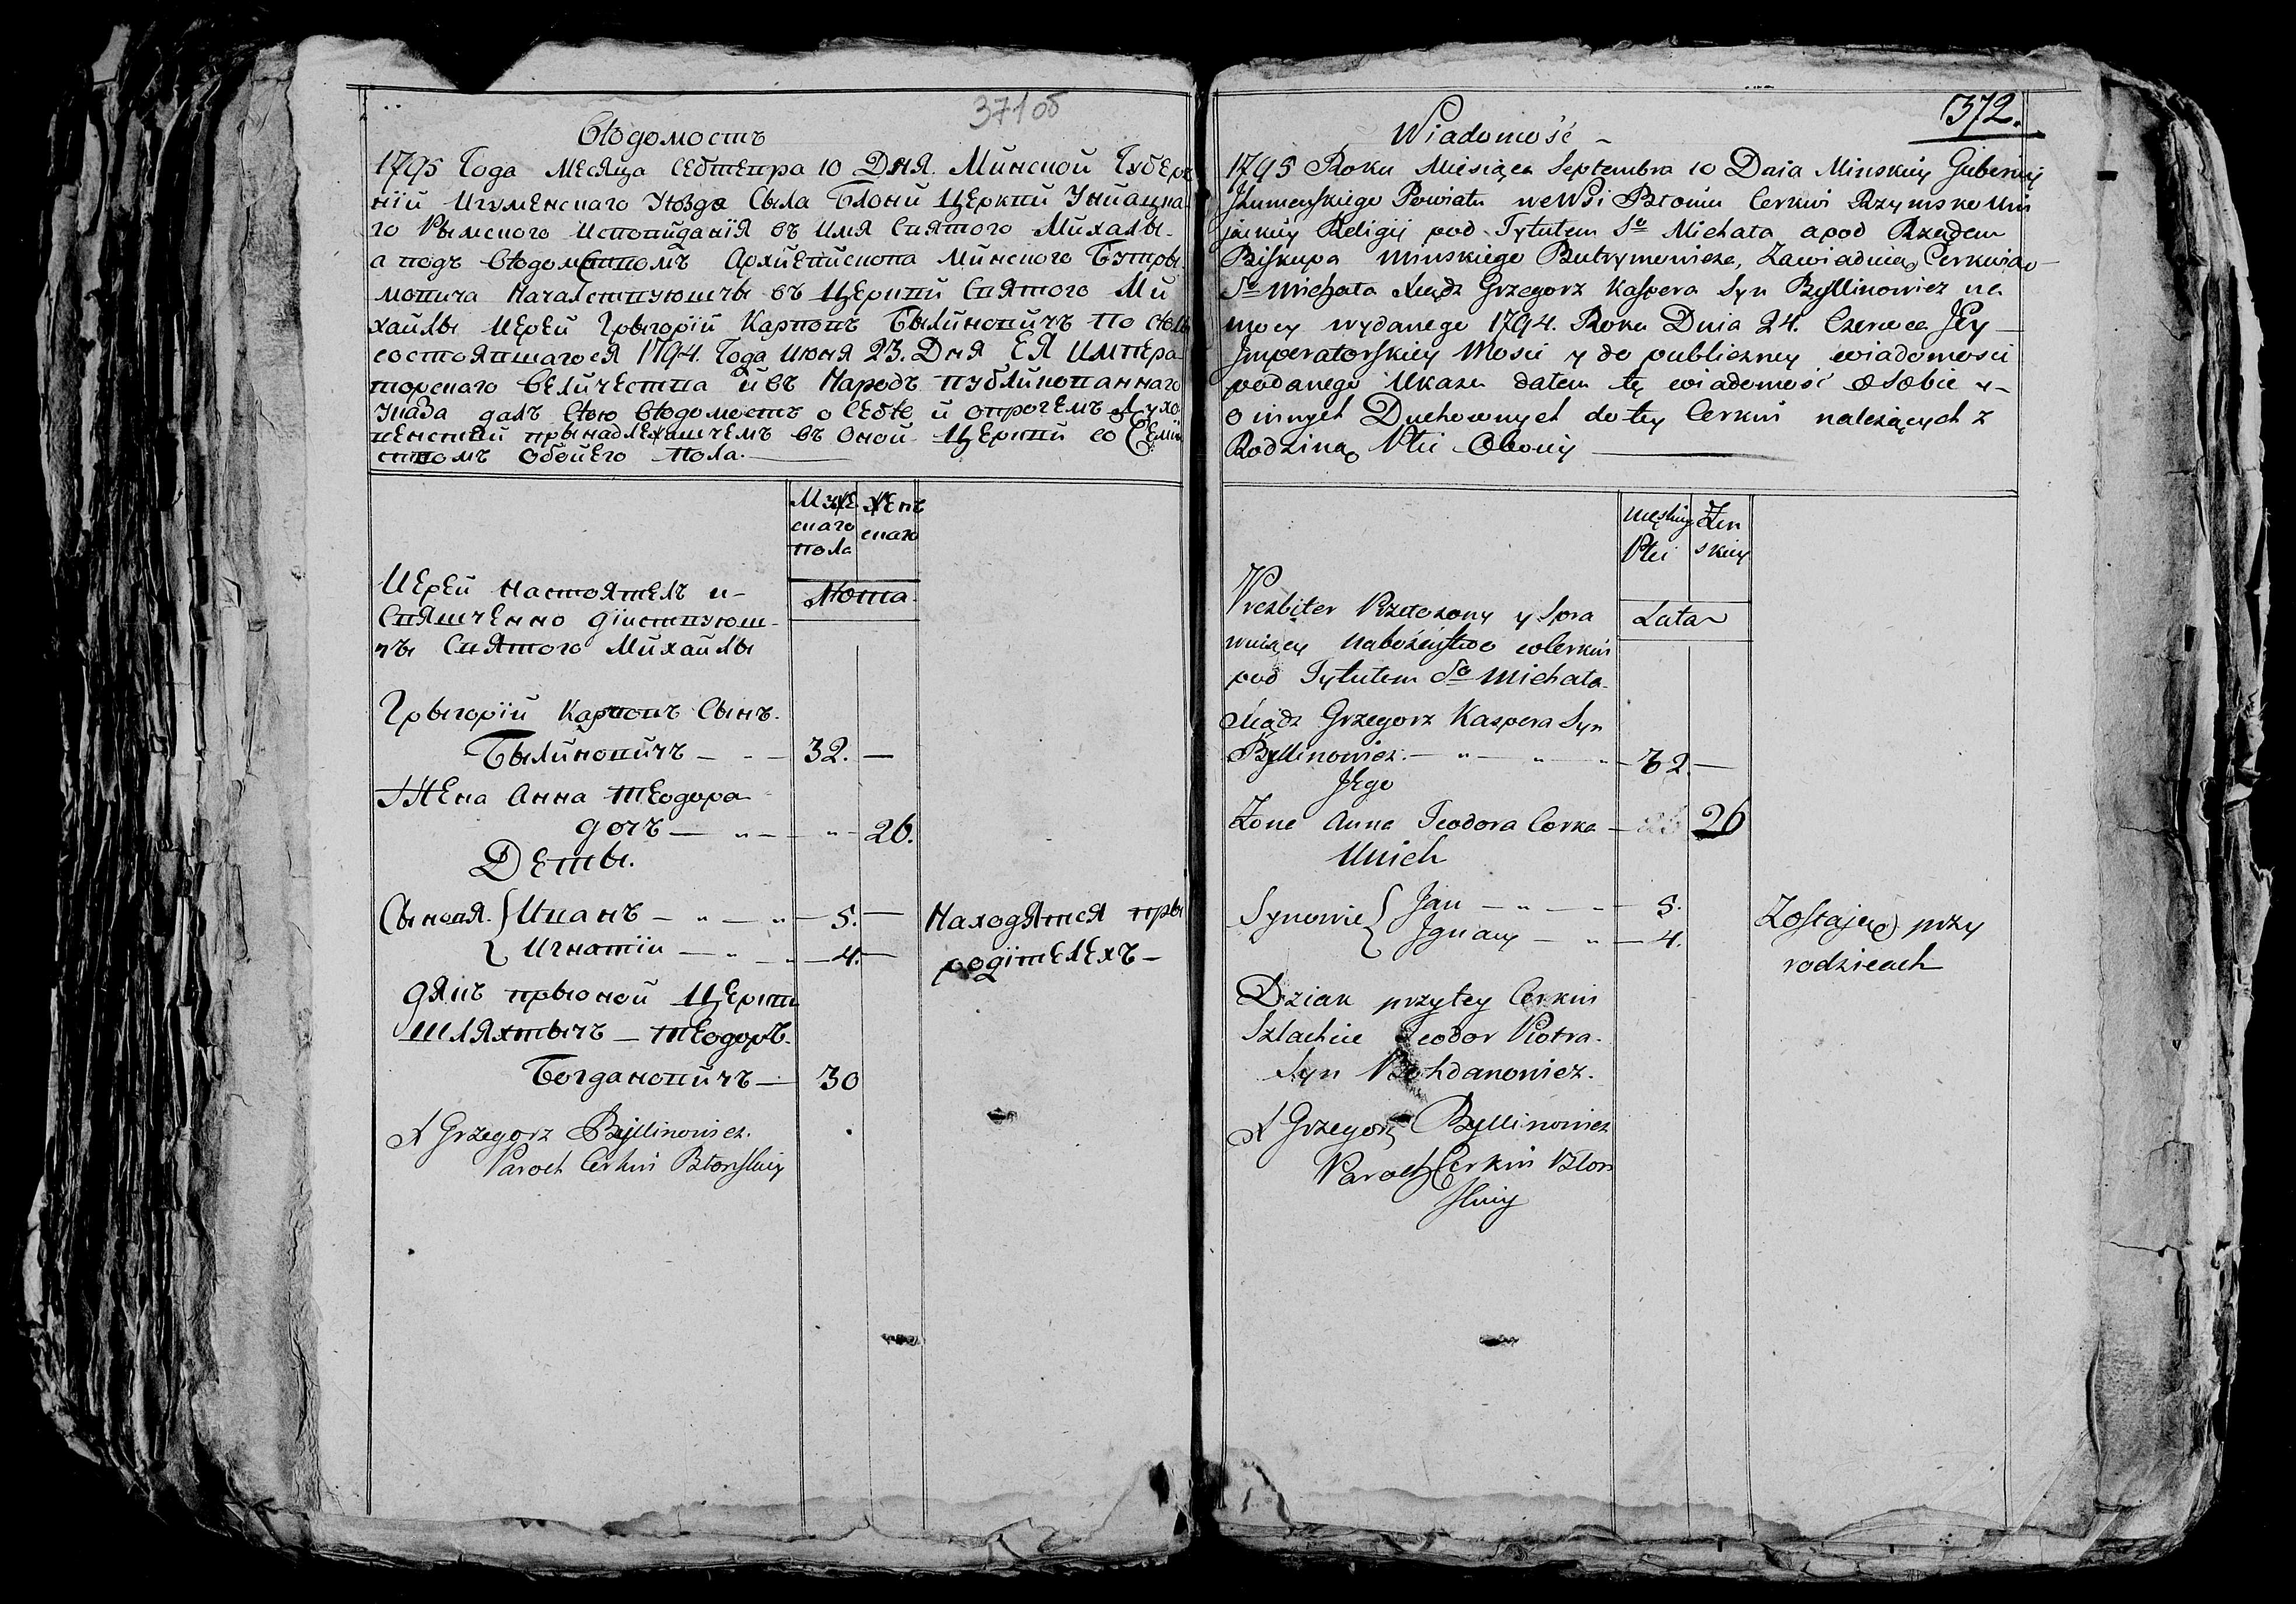 371об
Вѣдомость
1795 Года Месяца Себтепра 10 Дня. Минской Губер
нїй Игуменскаго Уѣзда Сыла Блони Церкви Унйацка
го Рымского исповиданїя въ имя Святого Михалы.
а подъ вѣдомствомъ Архйепископа Минского Бутры
мовича Началствуюшчы въ Церкви Святого Ми
хайлы Иерей Грыгорїй Карповъ Былйновичъ по силѣ
состоявшагося 1794. Года Июня 23. Дня ЕЯ Импера
торскаго Величества й въ Народъ публикованнаго
указа далъ Сѣю Вѣдомость о Себѣ й опрочемъ духо
венствй прынадлежашчемъ въ оной Церквй со Семй
ствомъ обойего пола.
Муже
скаго
пола
Жень
скаго
Лѣта.
Иерей Настоятелъ и
Свяшченно дїиствуюш
чы Святого Михайлы
Грыгорїй Карповъ Сынъ.
Былйновичъ 32. —
Жена Анна Теодора
дочъ — 26.
Деты.
Сыновя. Иванъ — 5. — Находятся пры
Игнатїи — 4. — родїтелехъ —
дякъ прыоной Церкви
шляхтычъ — Теодоръ.
Богдановйчъ — 30
X Grzegorz Byllinowicz.
Paroch Cerkwi Błonskiey
372.
Wiadomość —
1795 Roku Miesiąca Septembra 10 Dnia Minskiey Gubernij
Jhumenskiego Powiatu weWsi Błoniu Cerkwi Rzymsko Uni
jackiey Religij pod Tytułem So Michała a pod Rządem
Biskupa Minskiego Butrymowicza, Zawiaduiący Cerkwią
So Michała Xiądz Grzegorz Kaspera Syn Byllinowicz na
mocy wydanego 1794. Roku Dnia 24. Czerwca Jey
Imperatorskiey Mosci y do publiczney wiadomosci
podanego Ukazu datem tę wiadomość o Sobie y
o innych Duchownych do tey Cerkwi należących z
Rodziną Płci Oboiey
Męskiey
Płci
Żen
skiey
Lata
Prezbiter Przełożony y Spra
wuiący nabożeństwo wCerkwi
pod Tytułem So Michała
Xiądz Grzegorz Kaspera Syn
Byllinowicz. — 32. —
Jego
Żona Anna Teodora Corka — 26
Unich
Synowie Jan — 5. Zostaią przy
Jgnacy — 4. rodzicach
Dziak przytey Cerkwi
Szlachcic Teodor Piotra
Syn Bohdanowicz.
X Grzegorz Byllinowicz
Paroch Cerkwi Błon
skiey